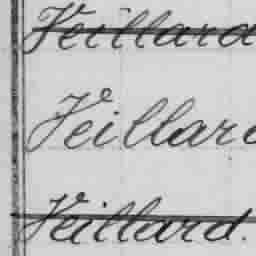 Veillard
Veillard
Veillard.